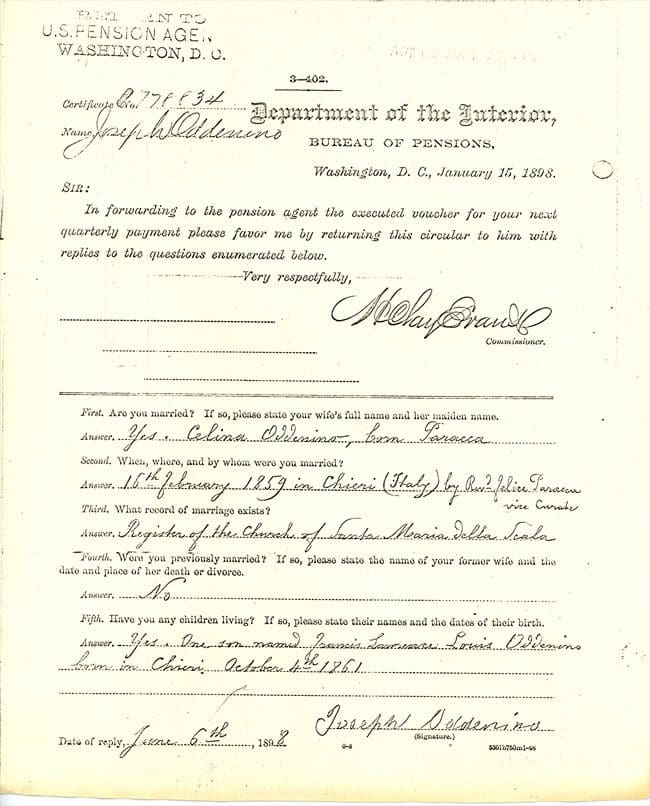 RETURN TO
U.S. PENSION AGEN
WASHINGTON, D. C.
3—402.
Certificate No. 778834
Department of the Interior,
Name, Joseph Oddenino
BUREAU OF PENSIONS,
Washington, D. C., January 15, 1898.
SIR:
In forwarding to the pension agent the executed voucher for your next
quarterly payment please favor me by returning this circular to him with
replies to the questions enumerated below.
Very respectfully,
H Clay Evans
Commissioner.
First. Are you married? If so, please state your wife's full name and her maiden name.
Answer. Yes. Celina Oddenino, born Paracca
Second. When, where, and by whom were you married?
Answer. 15th February 1859 in Chieri (Italy) by Revd Felice Paracca
vice Curate
Third. What record of marriage exists?
Answer. Register of the Church of Santa Maria della Scala
Fourth. Were you previously married? If so, please state the name of your former wife and the
date and place of her death or divorce.
Answer. No
Fifth. Have you any children living? If so, please state their names and the dates of their birth.
Answer. Yes. One son named Francis Lawrence Louis Oddenino
born in Chieri, October 4th 1861
Joseph Oddenino
(Signature.)
Date of reply, June 6th, 1898
6—3
5301b750m1-98